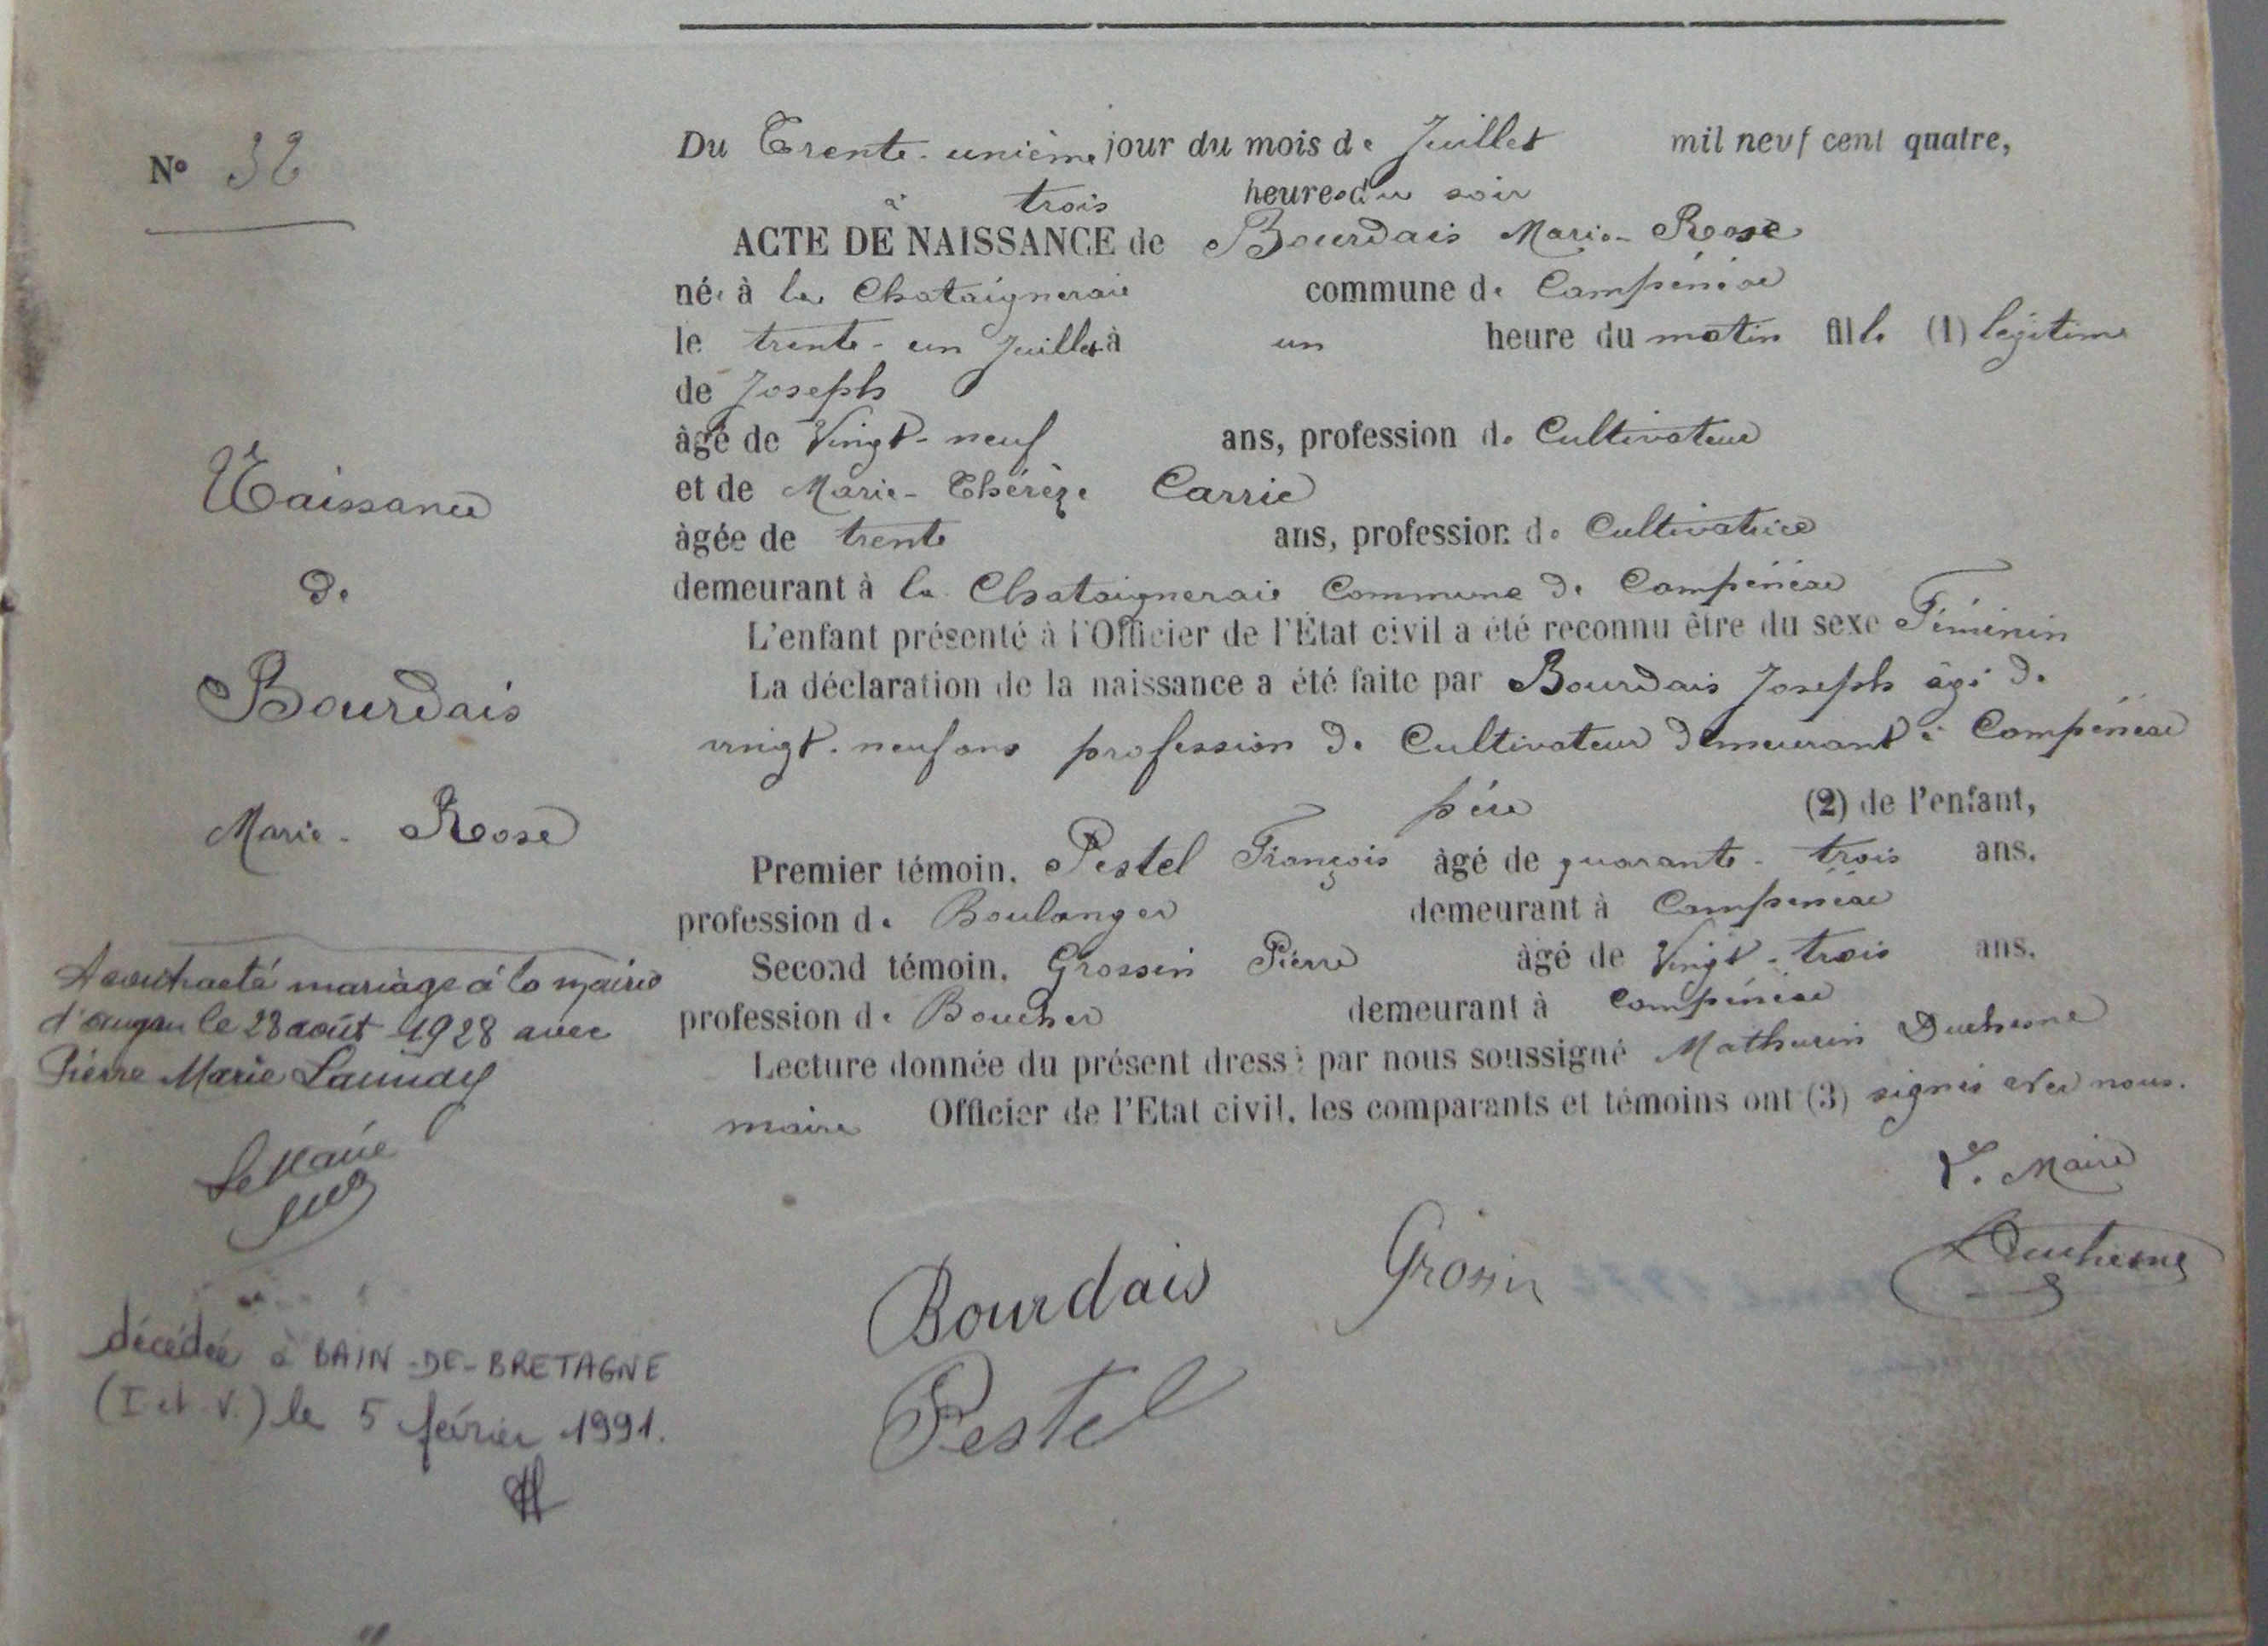 N° 32
Naissance
de
Bourdais
Marie-Rose
A contracté mariage à la mairie
d'augan le 28 août 1928 avec
Pierre Marie Launay
Le Maire
décédée à BAIN-DE-BRETAGNE
(I et V.) le 5 février 1991.
Du Trente-unième jour du mois de Juillet mil neuf cent quatre,
à trois heures du soir
ACTE DE NAISSANCE de Bourdais Marie-Rose
née à la Chataigneraie commune de Campénéac
le trente-un Juillet à un heure du matin fille (1) légitime
de Joseph
âgé de Vingt-neuf ans, profession de Cultivateur
et de Marie-Thérèze Carric
âgée de trente ans, profession de Cultivatrice
demeurant à la Chataigneraie Commune de Campénéac
L'enfant présenté à l'Officier de l'État civil a été reconnu être du sexe Féminin
La déclaration de la naissance a été faite par Bourdais Joseph âgé de
vingt-neuf ans profession de Cultivateur demeurant à Campénéac
père (2) de l'enfant,
Premier témoin, Pestel François âgé de quarante-trois ans.
profession de Boulanger demeurant à Campénéac
Second témoin, Grossin Pierre âgé de Vingt-trois ans.
profession de Boucher demeurant à Campénéac
Lecture donnée du présent dressé par nous soussigné Mathurin Duchesne
maire Officier de l'Etat civil, les comparants et témoins ont (3) signés avec nous.
Le Maire
Bourdais Grossin Duchesne
Pestel